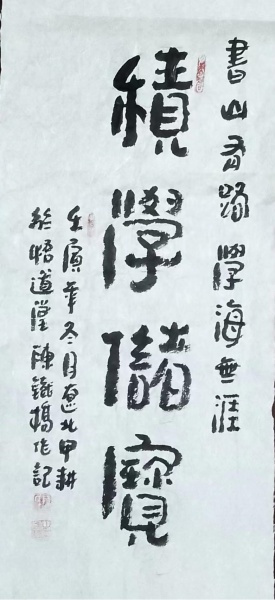 書山有路學海無涯
積學儲寶
壬寅年冬月邊北甲耕
於悟道堂陳鐵橋作記